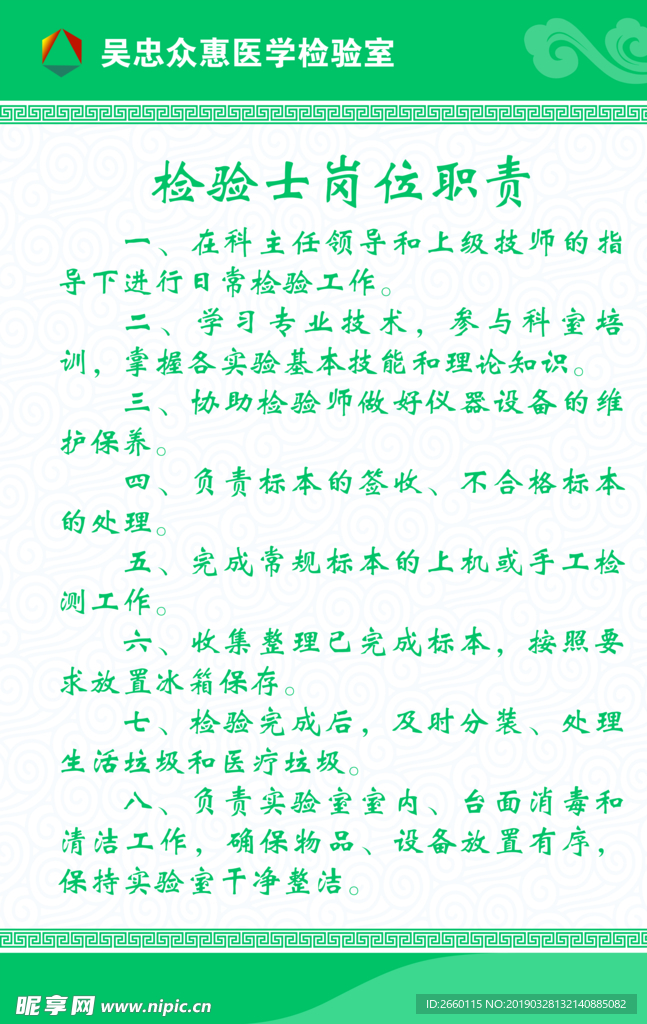 吴忠众惠医学检验室
检验士岗位职责
一、在科主任领导和上级技师的指
导下进行日常检验工作。
二、学习专业技术，参与科室培
训，掌握各实验基本技能和理论知识。
三、协助检验师做好仪器设备的维
护保养。
四、负责标本的签收、不合格标本
的处理。
五、完成常规标本的上机或手工检
测工作。
六、收集整理已完成标本，按照要
求放置冰箱保存。
七、检验完成后，及时分装、处理
生活垃圾和医疗垃圾。
八、负责实验室室内、台面消毒和
清洁工作，确保物品、设备放置有序，
保持实验室干净整洁。
昵享网 www.nipic.cn
ID:2660115 NO:20190328132140885082